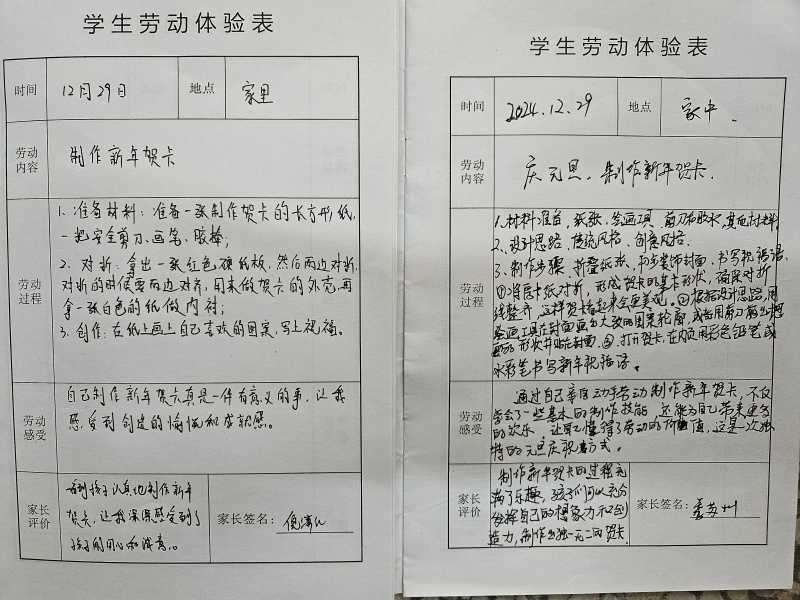 学生劳动体验表
时间 12月29日 地点 家里
劳动内容 制作新年贺卡
劳动过程
1. 准备材料：准备一张制作贺卡的长方形纸,
一把安全剪刀、画笔、胶棒；
2. 对折：拿出一张红色硬纸板，然后两边对折,
对折的时候要两边对齐，用来做贺卡的外壳，再
拿一张白色的纸做内衬；
3. 创作：在纸上画上自己喜欢的图案，写上祝福。
劳动感受
自己制作新年贺卡真是一件有意义的事，让我
感受到创造的愉悦和成就感。
家长评价
看到孩子认真地制作新年
贺卡，让我深深感受到了
孩子的用心和成长。
家长签名：
学生劳动体验表
时间 2024.12.29 地点 家中.
劳动内容 庆元旦、制作新年贺卡.
劳动过程
1. 材料准备，纸张、绘画工具、剪刀和胶水，其他材料
2. 设计思路、传统风格、创意风格.
3. 制作步骤、折叠纸张、初步装饰封面、书写祝福语.
①将厚卡纸对折，形成贺卡的基本形状，确保对折
线整齐，这样贺卡看起来会更美观。②根据设计思路，用
绘画工具在封面画出大致的图案轮廓，或者用剪刀剪出
形状并贴在封面。③打开贺卡，在内页用彩色铅笔或
水彩笔书写新年祝福语。
劳动感受
通过自己亲自动手劳动制作新年贺卡，不仅
学会了一些基本的制作技能 还能为自己带来更多
的欢乐 让自己懂得了劳动的价值，这是一次独
特的元旦庆祝方式。
家长评价
制作新年贺卡的过程充
满了乐趣，孩子们可以充分
发挥自己的想象力和创
造力，制作出独一无二的贺卡
家长签名：姜苏州